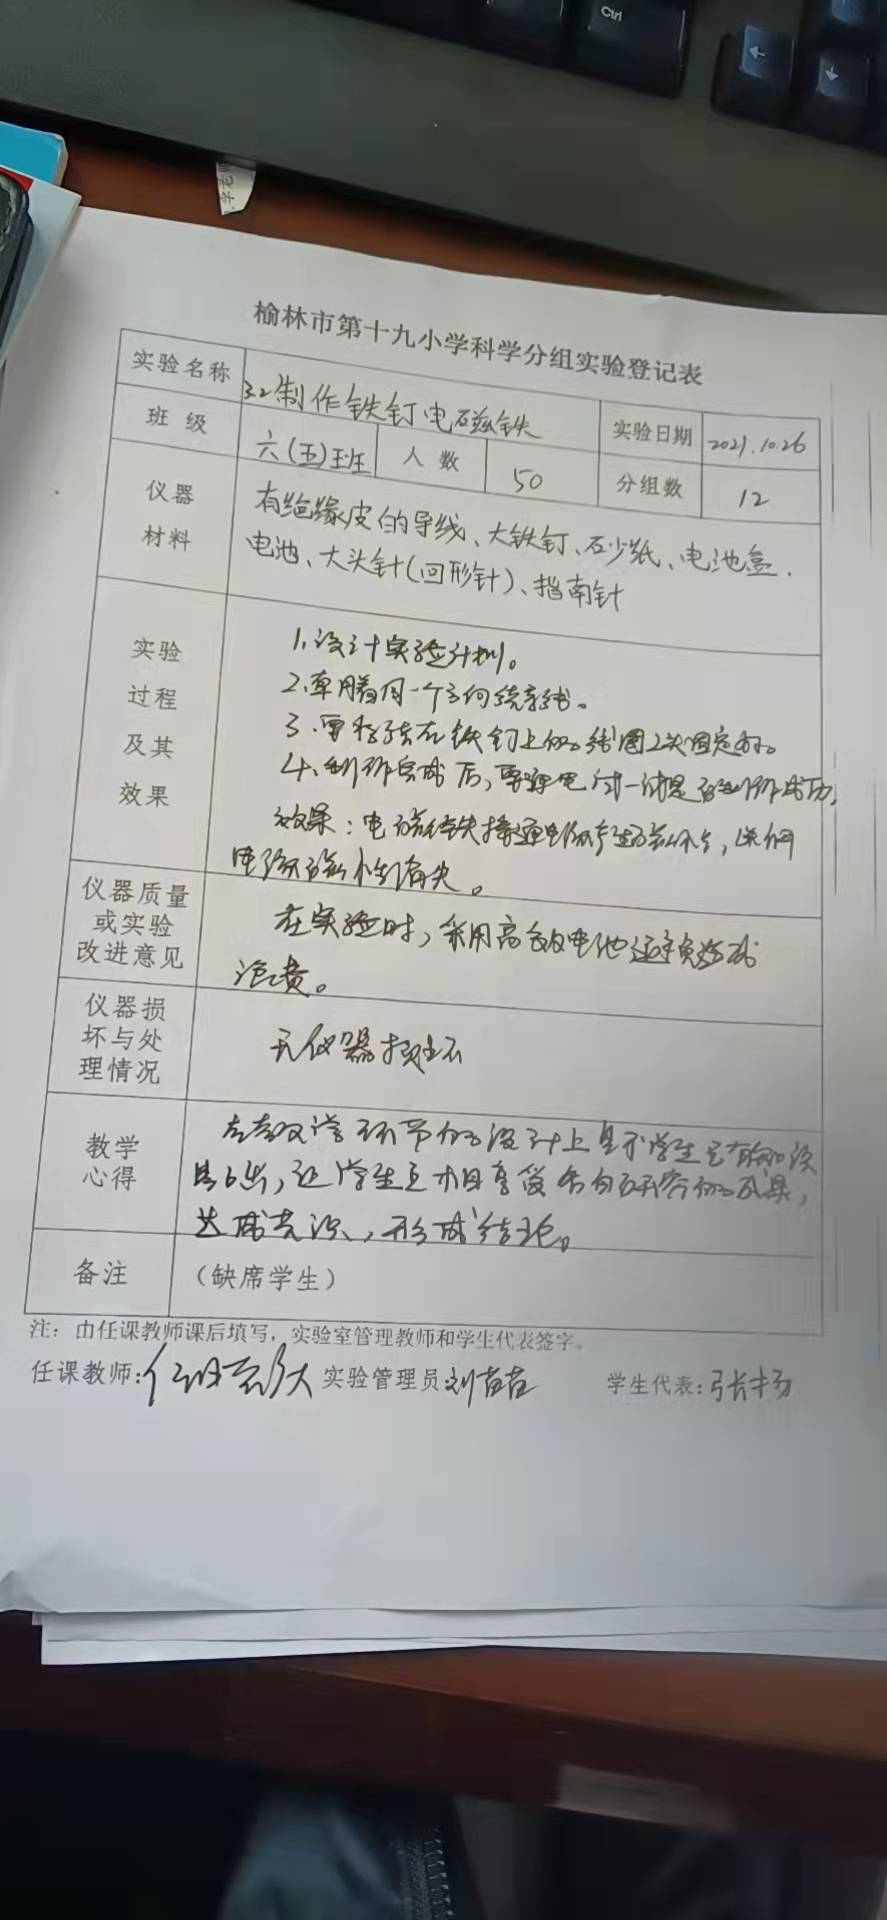 Ctrl
榆林市第十九小学科学分组实验登记表
实验名称 3.2制作铁钉电磁铁 实验日期 2021.10.26
班 级 六(五)班 人 数 50 分组数 12
仪器
材料
有绝缘皮的导线、大铁钉、砂纸、电池盒.
电池、大头针(回形针)、指南针
实验
过程
及其
效果
1.设计实验计划。
2.单朝着同一个方向绕导线。
3.要将绕在铁钉上的线圈2头固定好。
4.制作完成后,要通电试一试是否制作成功,
效果:电磁铁接通电源产生磁性,断开
电源磁性消失。
仪器质量
或实验
改进意见
在实验时,采用高效电池避免造成
浪费。
仪器损
坏与处
理情况
无仪器损坏
教学
心得
在教学环节的设计上显示学生已有的知识
让学生互相享受各自研究的成果,
达成共识,形成结论。
备注 (缺席学生)
注:由任课教师课后填写,实验室管理教师和学生代表签字。
任课教师: 实验管理员:刘苗苗 学生代表:张扬